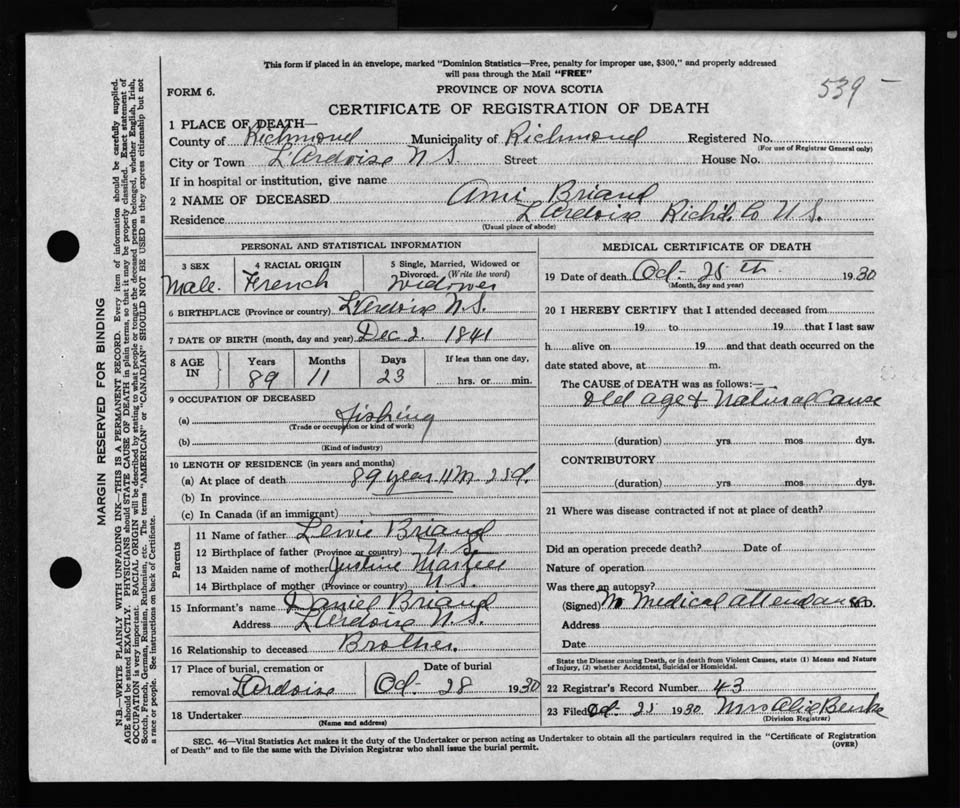 This form if placed in an envelope, marked "Dominion Statistics—Free, penalty for improper use, $300," and properly addressed
will pass through the Mail "FREE"
539-
FORM 6.
PROVINCE OF NOVA SCOTIA
CERTIFICATE OF REGISTRATION OF DEATH
1 PLACE OF DEATH—
County of Richmond Municipality of Richmond Registered No.
(For use of Registrar General only)
City or Town L'Ardoise N S. Street House No.
If in hospital or institution, give name
2 NAME OF DECEASED Ami Briand
Residence L'Ardoise Richd. Co N S.
(Usual place of abode)
PERSONAL AND STATISTICAL INFORMATION
3 SEX 4 RACIAL ORIGIN 5 Single, Married, Widowed or
Divorced. (Write the word)
Male. French Widower
6 BIRTHPLACE (Province or country) L'Ardoise N.S.
7 DATE OF BIRTH (month, day and year) Dec 2. 1841
8 AGE IN Years Months Days If less than one day,
89 11 23 hrs. or min.
9 OCCUPATION OF DECEASED
(a) Fishing
(Trade or occupation or kind of work)
(b)
(Kind of industry)
10 LENGTH OF RESIDENCE (in years and months)
(a) At place of death 89 year 11 M 23d.
(b) In province
(c) In Canada (if an immigrant)
Parents
11 Name of father Briand
12 Birthplace of father (Province or country) N S.
13 Maiden name of mother Justine
14 Birthplace of mother (Province or country) N S.
15 Informant's name Daniel Briand
Address L'Ardoise N.S.
16 Relationship to deceased Brother.
17 Place of burial, cremation or Date of burial
removal L'Ardoise Oct. 28 1930
18 Undertaker
(Name and address)
MEDICAL CERTIFICATE OF DEATH
19 Date of death Oct- 25 th. 1930
(Month, day and year)
20 I HEREBY CERTIFY that I attended deceased from
19 to 19 that I last saw
h alive on 19 and that death occurred on the
date stated above, at m.
The CAUSE OF DEATH was as follows:—
Old age & Natural Cause
(duration) yrs. mos. dys.
CONTRIBUTORY
(duration) yrs. mos. dys.
21 Where was disease contracted if not at place of death?
Did an operation precede death? Date of
Nature of operation
Was there an autopsy?
(Signed) No Medical attendance M.D.
Address
Date
State the Disease causing Death, or in death from Violent Causes, state (1) Means and Nature
of Injury, (2) whether Accidental, Suicidal or Homicidal.
22 Registrar's Record Number 43
23 Filed Oct- 25 1930 Mrs
(Division Registrar)
SEC. 46—Vital Statistics Act makes it the duty of the Undertaker or person acting as Undertaker to obtain all the particulars required in the "Certificate of Registration
of Death" and to file the same with the Division Registrar who shall issue the burial permit.
(OVER)
MARGIN RESERVED FOR BINDING
N.B.—WRITE PLAINLY WITH UNFADING INK—THIS IS A PERMANENT RECORD. Every item of information should be carefully supplied.
AGE should be stated EXACTLY. PHYSICIANS should STATE CAUSE OF DEATH in plain terms, so that it may be properly classified. Exact statement of
OCCUPATION is very important. RACIAL ORIGIN will be described by stating to what people or tongue the deceased person belonged, whether English, Irish,
Scotch, French, German, Russian, Ruthenian, etc. The terms "AMERICAN" or "CANADIAN" SHOULD NOT BE USED as they express citizenship but not
a race or people. See instructions on back of Certificate.